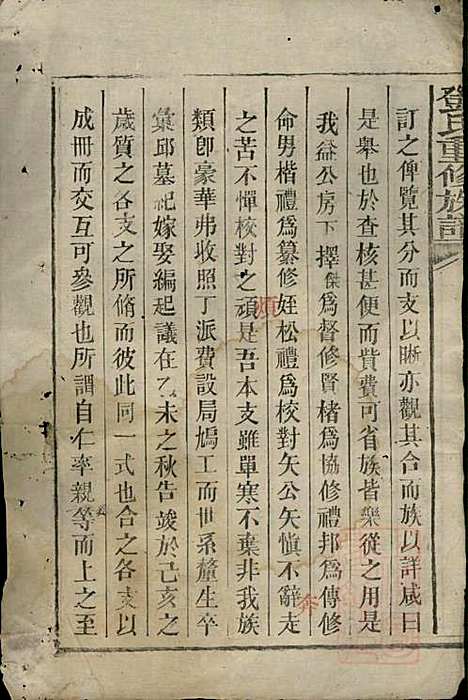 鄧氏重修族譜
訂之俾覽其分而支以晰亦觀其合而族以詳咸曰
是舉也於查核甚便而貲費可省族皆樂從之用是
我益公房下擇傑為督修賢楮為協修禮邦為傳修
命男楷禮為纂修姪松禮為校對矢公矢慎不辭奔走
之苦不憚校對之煩是吾本支雖單寒不棄非我族
類卽豪華弗收照丁派費設局鳩工而世系釐生卒
彙邱墓祀嫁娶編起議在乙未之秋告竣於己亥之
歲質之各支之所脩而彼此同一式也合之各支以
成冊而交互可參觀也所謂自仁率親等而上之至